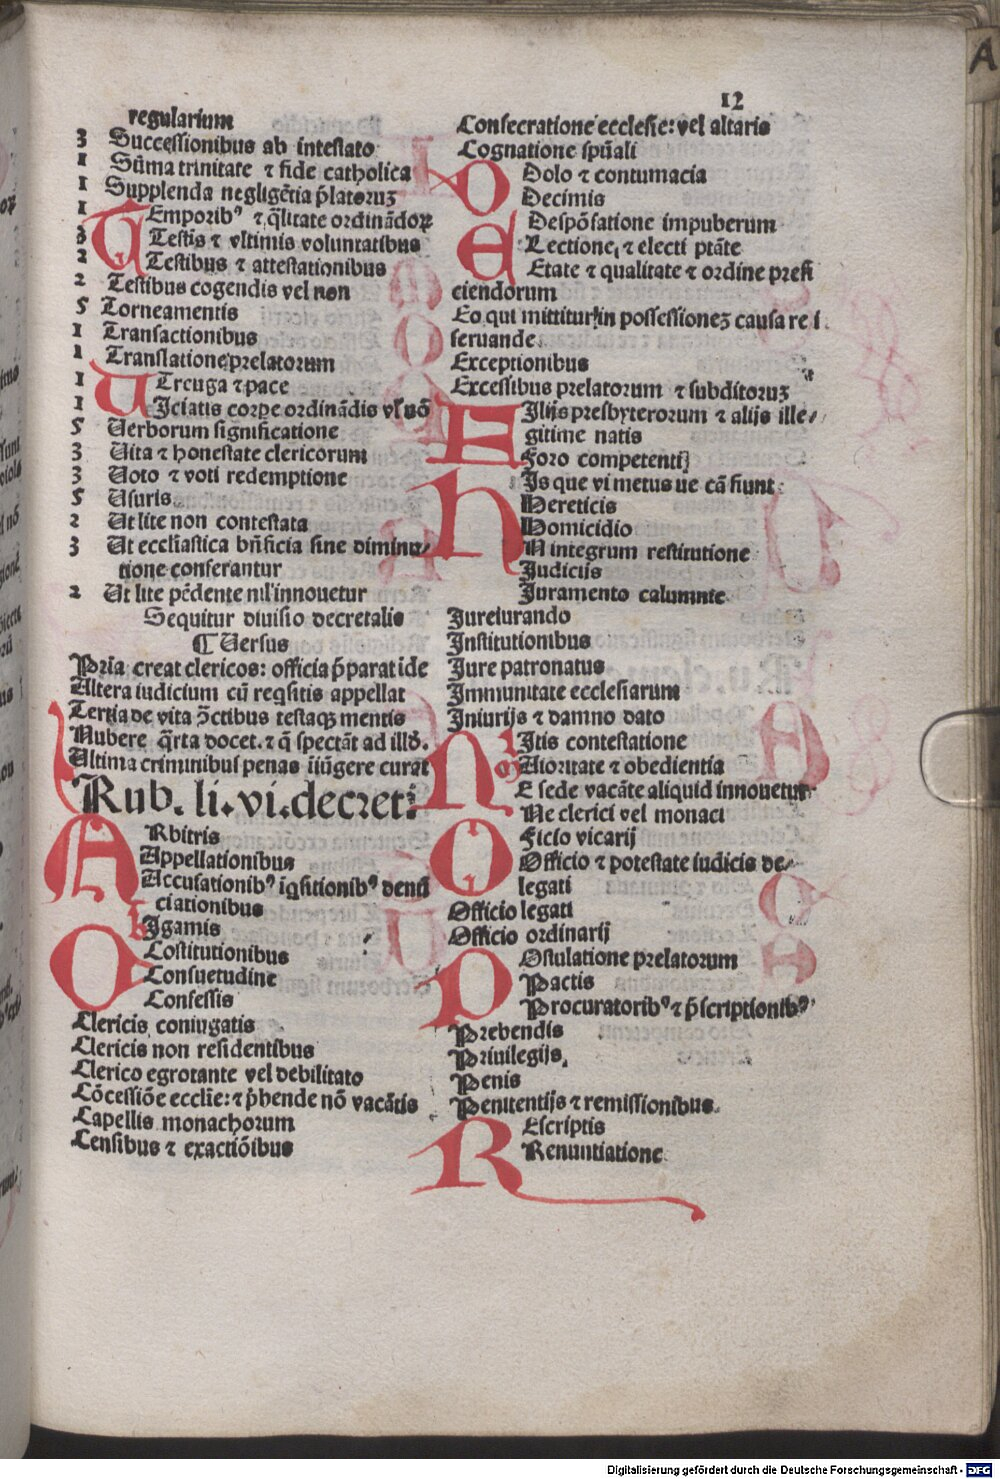 12
regularium
3 Successionibus ab intestato
1 Sũma trinitate ⁊ fide catholica
1 Supplenda negligẽtia p̃latoruꝫ
1 Emporibꝰ ⁊ q̃litate ordinãdoꝝ
3 Testis ⁊ vltimis voluntatibus
2 Testibus ⁊ attestationibus
2 Testibus cogendis vel non
5 Torneamentis
1 Transactionibus
1 Translatione prelatorum
1 Treuga ⁊ pace
1 Iciatis corpe ordinãdis vľ nõ
5 Uerborum significatione
3 Uita ⁊ honestate clericorum
3 Uoto ⁊ voti redemptione
5 Usuris
2 Ut lite non contestata
3 Ut ecclĩastica bñficia sine diminu/
tione conferantur
2 Ut lite pẽdente nil innouetur
Sequitur diuisio decretalis
¶ Uersus
Pria creat clericos: officia p̃parat ide
Altera iudicium cũ reqsitis appellat
Tertia de vita ꝯctibus testaqꝫ mentis
Nubere q̃rta docet. ⁊ q̃ spectãt ad illũ.
Ultima criminibus penas iũgere curat
Rub. li. vi. decret:
A Rbitris
Appellationibus
Accusationibꝰ iq̃sitionibꝰ denũ
ciationibus
b Igamis
C Ostitutionibus
Consuetudine
Confessis
Clericis coniugatis
Clericis non residentibus
Clerico egrotante vel debilitato
Cõcessiõe ecclĩe: ⁊ p̃bende nõ vacãtis
Capellis monachorum
Censibus ⁊ exactiõibus
Consecratione ecclesie: vel altaris
Cognatione spũali
D Dolo ⁊ contumacia
Decimis
Despõsatione impuberum
E Lectione, ⁊ electi ptãte
Etate ⁊ qualitate ⁊ ordine prefi
ciendorum
Eo qui mittitur in possessioneꝫ causa rei
seruande
Exceptionibus
Excessibus prelatorum ⁊ subditoruꝫ
F Ilijs presbyterorum ⁊ alijs ille/
gitime natis
Foro competenti
H Is que vi metus ue cã fiunt
Hereticis
Homicidio
N integrum restitutione
Judicijs
Juramento calumnie
Jureiurando
Institutionibus
Jure patronatus
Immunitate ecclesiarum
Iniurijs ⁊ damno dato
l Itis contestatione
m Aioritate ⁊ obedientia
N E sede vacãte aliquid innouetur
Ne clerici vel monaci
O Ficio vicarij
Officio ⁊ potestate iudicis de/
legati
Officio legati
Officio ordinarij
P Ostulatione prelatorum
Pactis
Procuratoribꝰ ⁊ p̃scriptionibꝰ
Prebendis
Priuilegijs.
Penis
Penitentijs ⁊ remissionibus.
R Escriptis
Renuntiatione
A
Digitalisierung gefördert durch die Deutsche Forschungsgemeinschaft - DFG